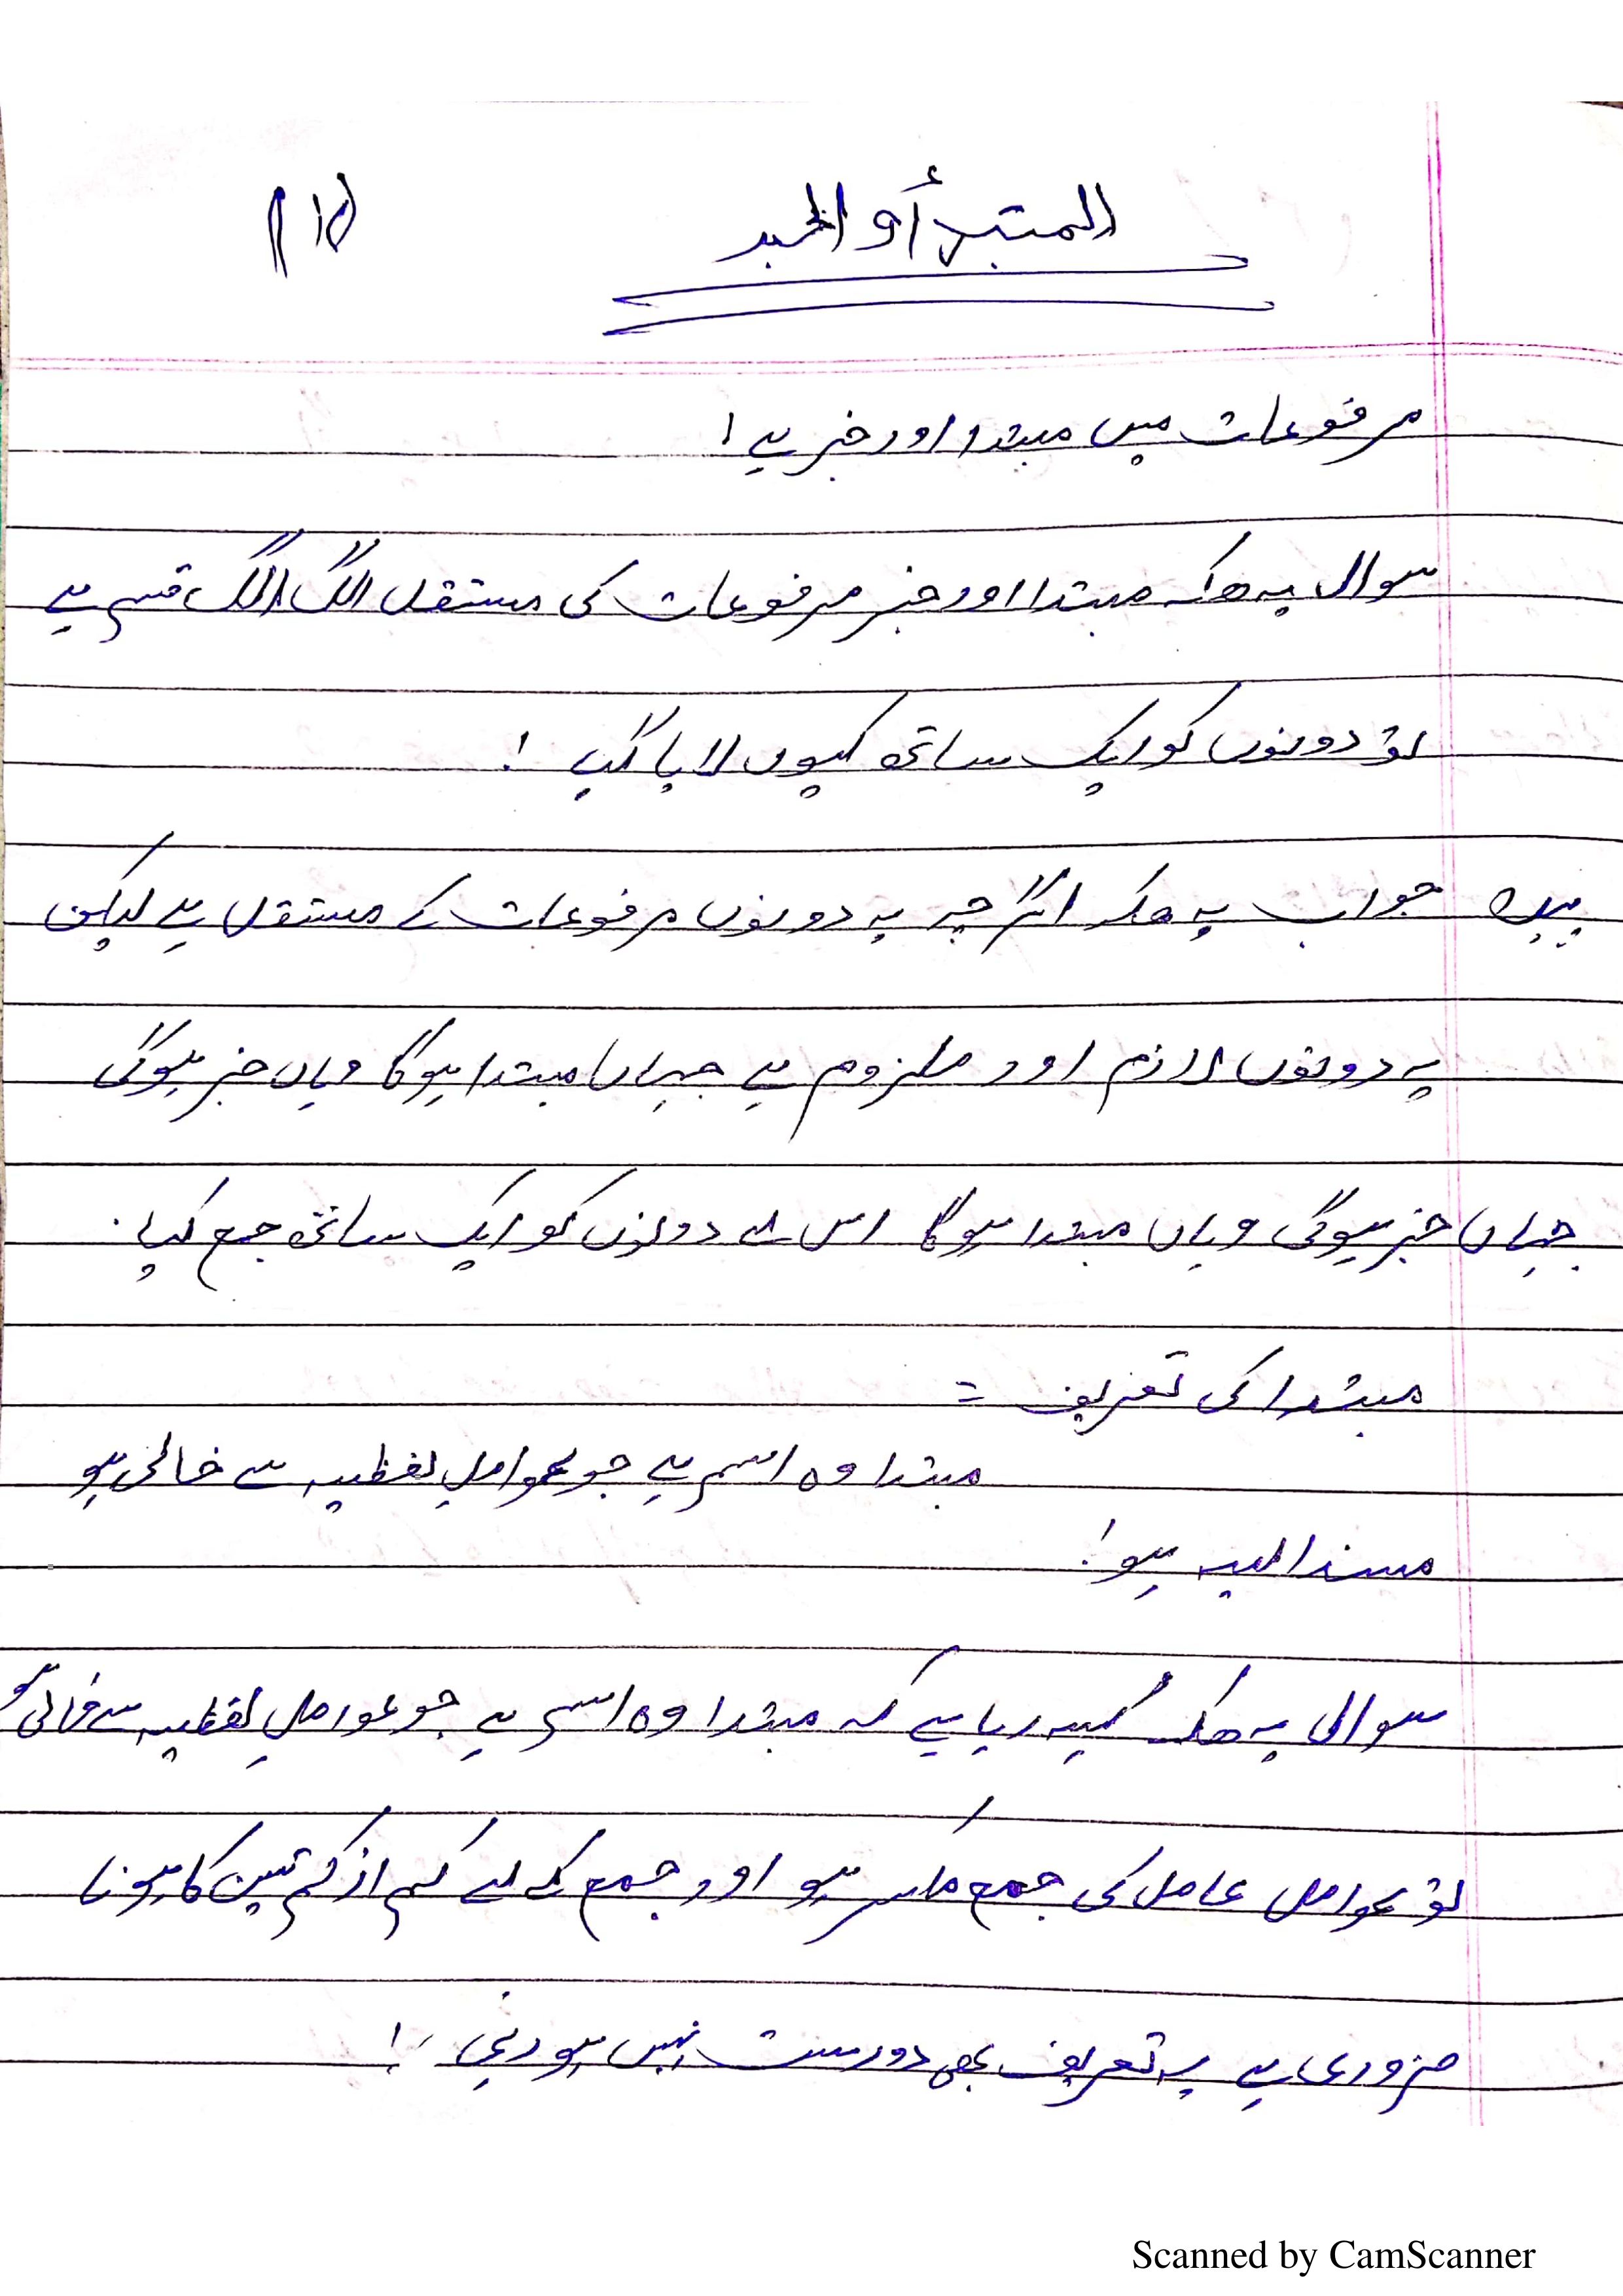 المبتدأ و الخبر
مرفوعات میں مبتدا اور خبر ہے!
سوال یہ ھکہ مبتدا اور خبر مرفوعات کی مستقل الگ الگ قسم ہے
تو دونوں کو ایک ساتھ کیوں لایا گیا !
جواب یہ ھکہ اگرچہ یہ دونوں مرفوعات کے مستقل ہے لیکن
یہ دونوں لازم اور ملزوم ہے جہاں مبتدا ہوگا وہاں خبر ہوگی
جہاں خبر ہوگی وہاں مبتدا ہوگا اس لے دونوں کو ایک ساتھ جمع کیا.
مبتدا کی تعریف =
مبتدا وہ اسم ہے جو عواملِ لفظیہ سے خالی ہو
مسند الیہ ہو!
سوال یہ ھکہ کہہ رہا ہے کہ مبتدا وہ اسم ہے جو عواملِ لفظیہ سے خالی ہو
تو عوامل عامل کی جمع ہو اور جمع کے لے کم از کم تین کا ہونا
ضروری ہے یہ تعریف بھی دورست نہیں ہورہی !
Scanned by CamScanner